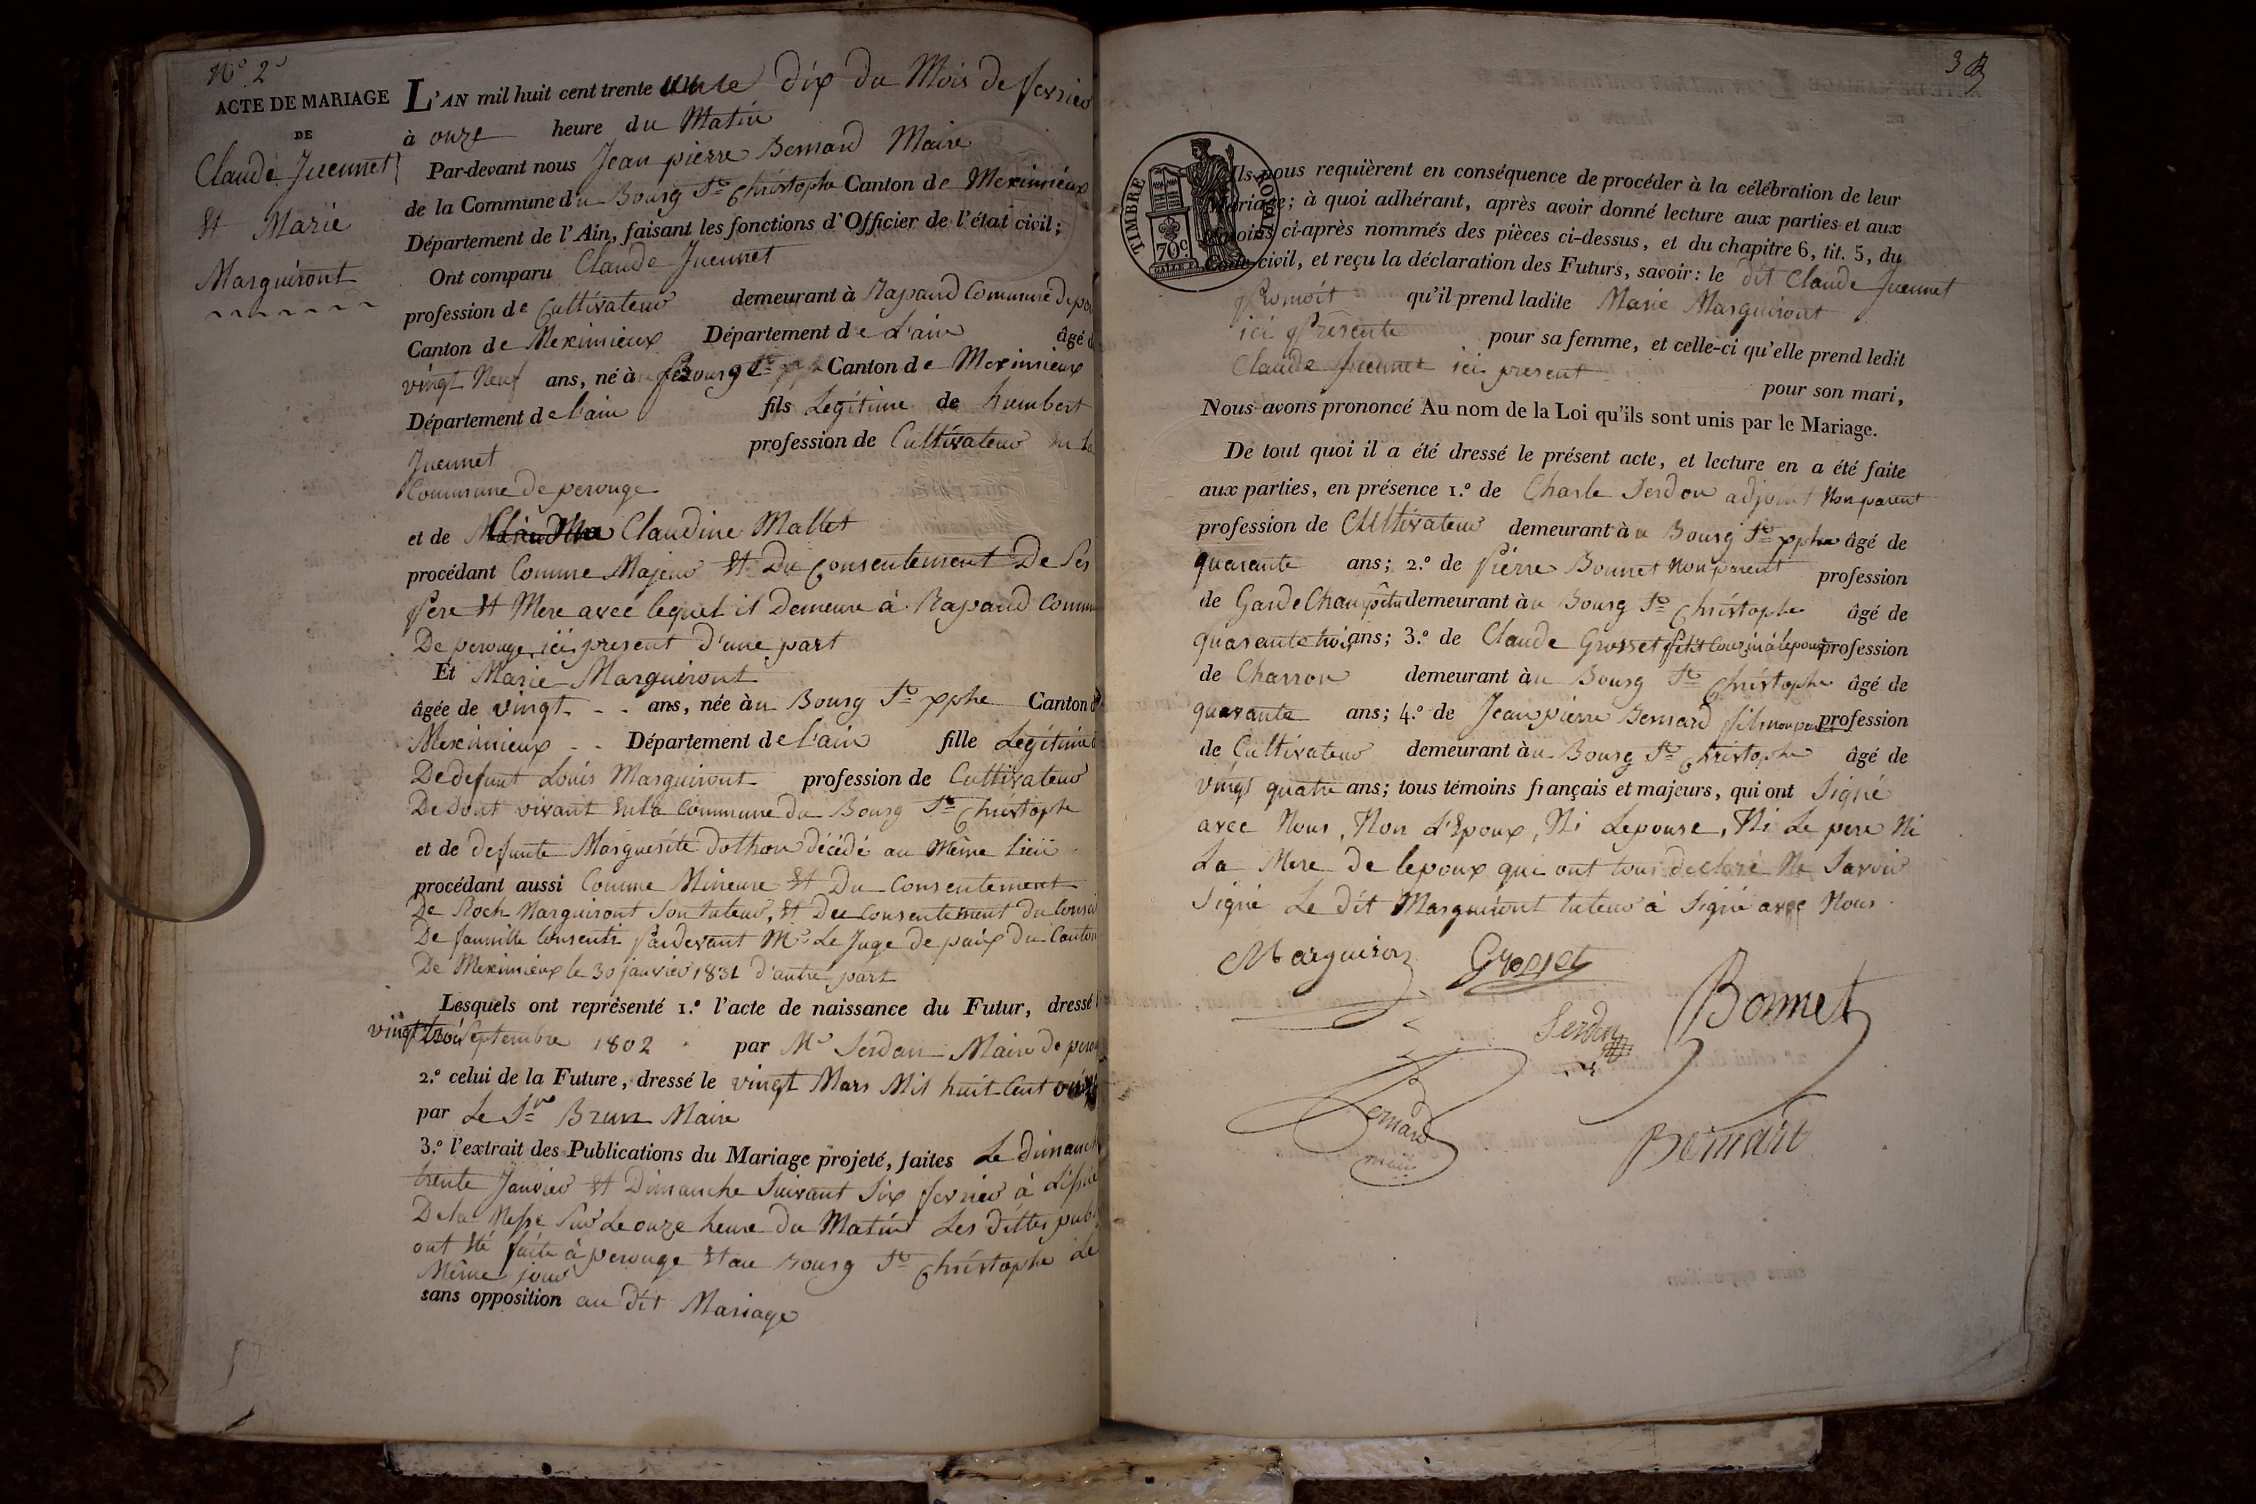 N° 2
ACTE DE MARIAGE
DE
Claude Jucunnet
Et Marie
Marguiront
L'AN mil huit cent trente un le dix du Mois de fevrier
à onze heure du Matin
Par-devant nous Jean pierre Bernard Maire
de la Commune du Bourg St Christophe Canton de Meximieux
Département de l'Ain, faisant les fonctions d'Officier de l'état civil;
Ont comparu Claude Jucunnet
profession de Cultivateur demeurant à Rapand Commune de
Canton de Meximieux Département de L'ain âgé
vingt Neuf ans, né à Bourg St Canton de Meximieux
Département de l'ain fils Legitime de humbert
Jucunnet profession de Cultivateur en la
Commune de perouge
et de Claudine Mallet
procédant Comme Majeur Et Du Consentement De Ses
Pere Et Mere avec lequel il Demeure à Rapand Commu
De perouge ici present d'une part
Et Marie Marguiront
âgée de vingt ans, née àu Bourg St xphe Canton d
Meximieux Département de l'ain fille Legitime
De defunt Louis Marguiront profession de Cultivateur
De Dont vivant En la Commune du Bourg St Christophe
et de defunte Marguerite Dothon décédé au Même Lieu
procédant aussi Comme Mineure Et Du Consentement
De Roch Marguiront Son tuteur, Et Du Consentement du Consei
De famille Consenti Pardevant Mr Le Juge de paix du Canton
De Meximieux le 30 janvier 1831 d'autre part
Lesquels ont représenté 1.° l'acte de naissance du Futur, dressé
vingt trois Septembre 1802 par Mr Jerdan Maire de pero
2.° celui de la Future, dressé le vingt Mars Mil huit Cent onze
par Le Sr Brun Maire
3.° l'extrait des Publications du Mariage projeté, faites Le dimanch
trente Janvier Et Dimanche Suivant Six fevrier à L'issue
De la Messe Sur Le onze heure du Matin Les dittes publ
ont Eté faite à perouge Et au Bourg St Christophe Le
Même jour
sans opposition au dit Mariage
33
TIMBRE ROYAL
70c
Ils nous requièrent en conséquence de procéder à la célébration de leur
Mariage; à quoi adhérant, après avoir donné lecture aux parties et aux
témoins ci-après nommés des pièces ci-dessus, et du chapitre 6, tit. 5, du
Code civil, et reçu la déclaration des Futurs, savoir: le dit Claude Jucunnet
Promoit qu'il prend ladite Marie Marguiront
ici Présente pour sa femme, et celle-ci qu'elle prend ledit
Claude Jucunnet ici present pour son mari,
Nous avons prononcé Au nom de la Loi qu'ils sont unis par le Mariage.
De tout quoi il a été dressé le présent acte, et lecture en a été faite
aux parties, en présence 1.° de Charle Jerdon adjoint Non parent
profession de Cultivateur demeurant àu Bourg St xphe âgé de
quarante ans; 2.° de Pierre Bonnet Non parent profession
de Garde Champêtre demeurant àu Bourg St Christophe âgé de
quarante trois ans; 3.° de Claude Grosset petit Couzin à lepoux profession
de Charron demeurant àu Bourg St Christophe âgé de
quarante ans; 4.° de Jean pierre Bernard fils non parent profession
de Cultivateur demeurant àu Bourg St Christophe âgé de
vingt quatre ans; tous témoins français et majeurs, qui ont Signé
avec Nous, Non L'Epoux, Ni Lepouse, Ni Le pere Ni
La Mere de lepoux qui ont tous declaré Ne Savoir
Signé Le dit Marguiront tuteur à Signé avec Nous
Marguiron Grosset
Bonnet
Jerdon
Bernard
maire
Bernard